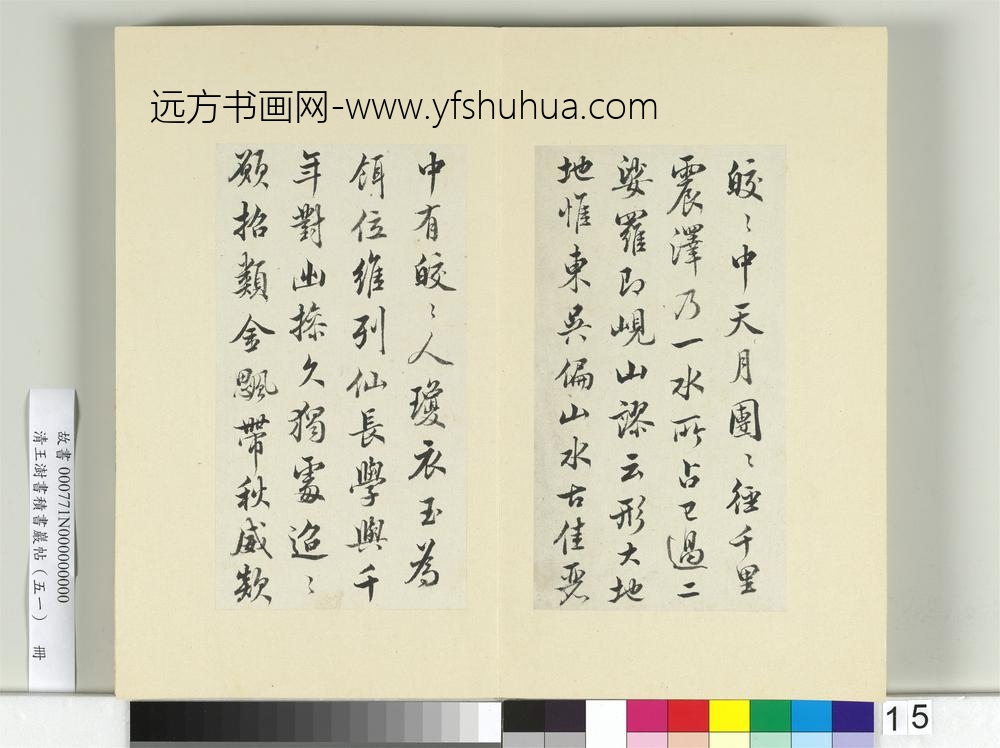 远方书画网-www.yfshuhua.com
皎〻中天月團〻徑千里
震澤乃一水所占已過二
娑羅即峴山謬云形大地
地惟東吳偏山水古佳麗
中有皎〻人瓊衣玉為
餌位維列仙長學與千
年對幽操久獨處迢〻
願招類金颸帶秋威欻
故書 000771N000000000
清王澍書積書巖帖(五一) 冊
15